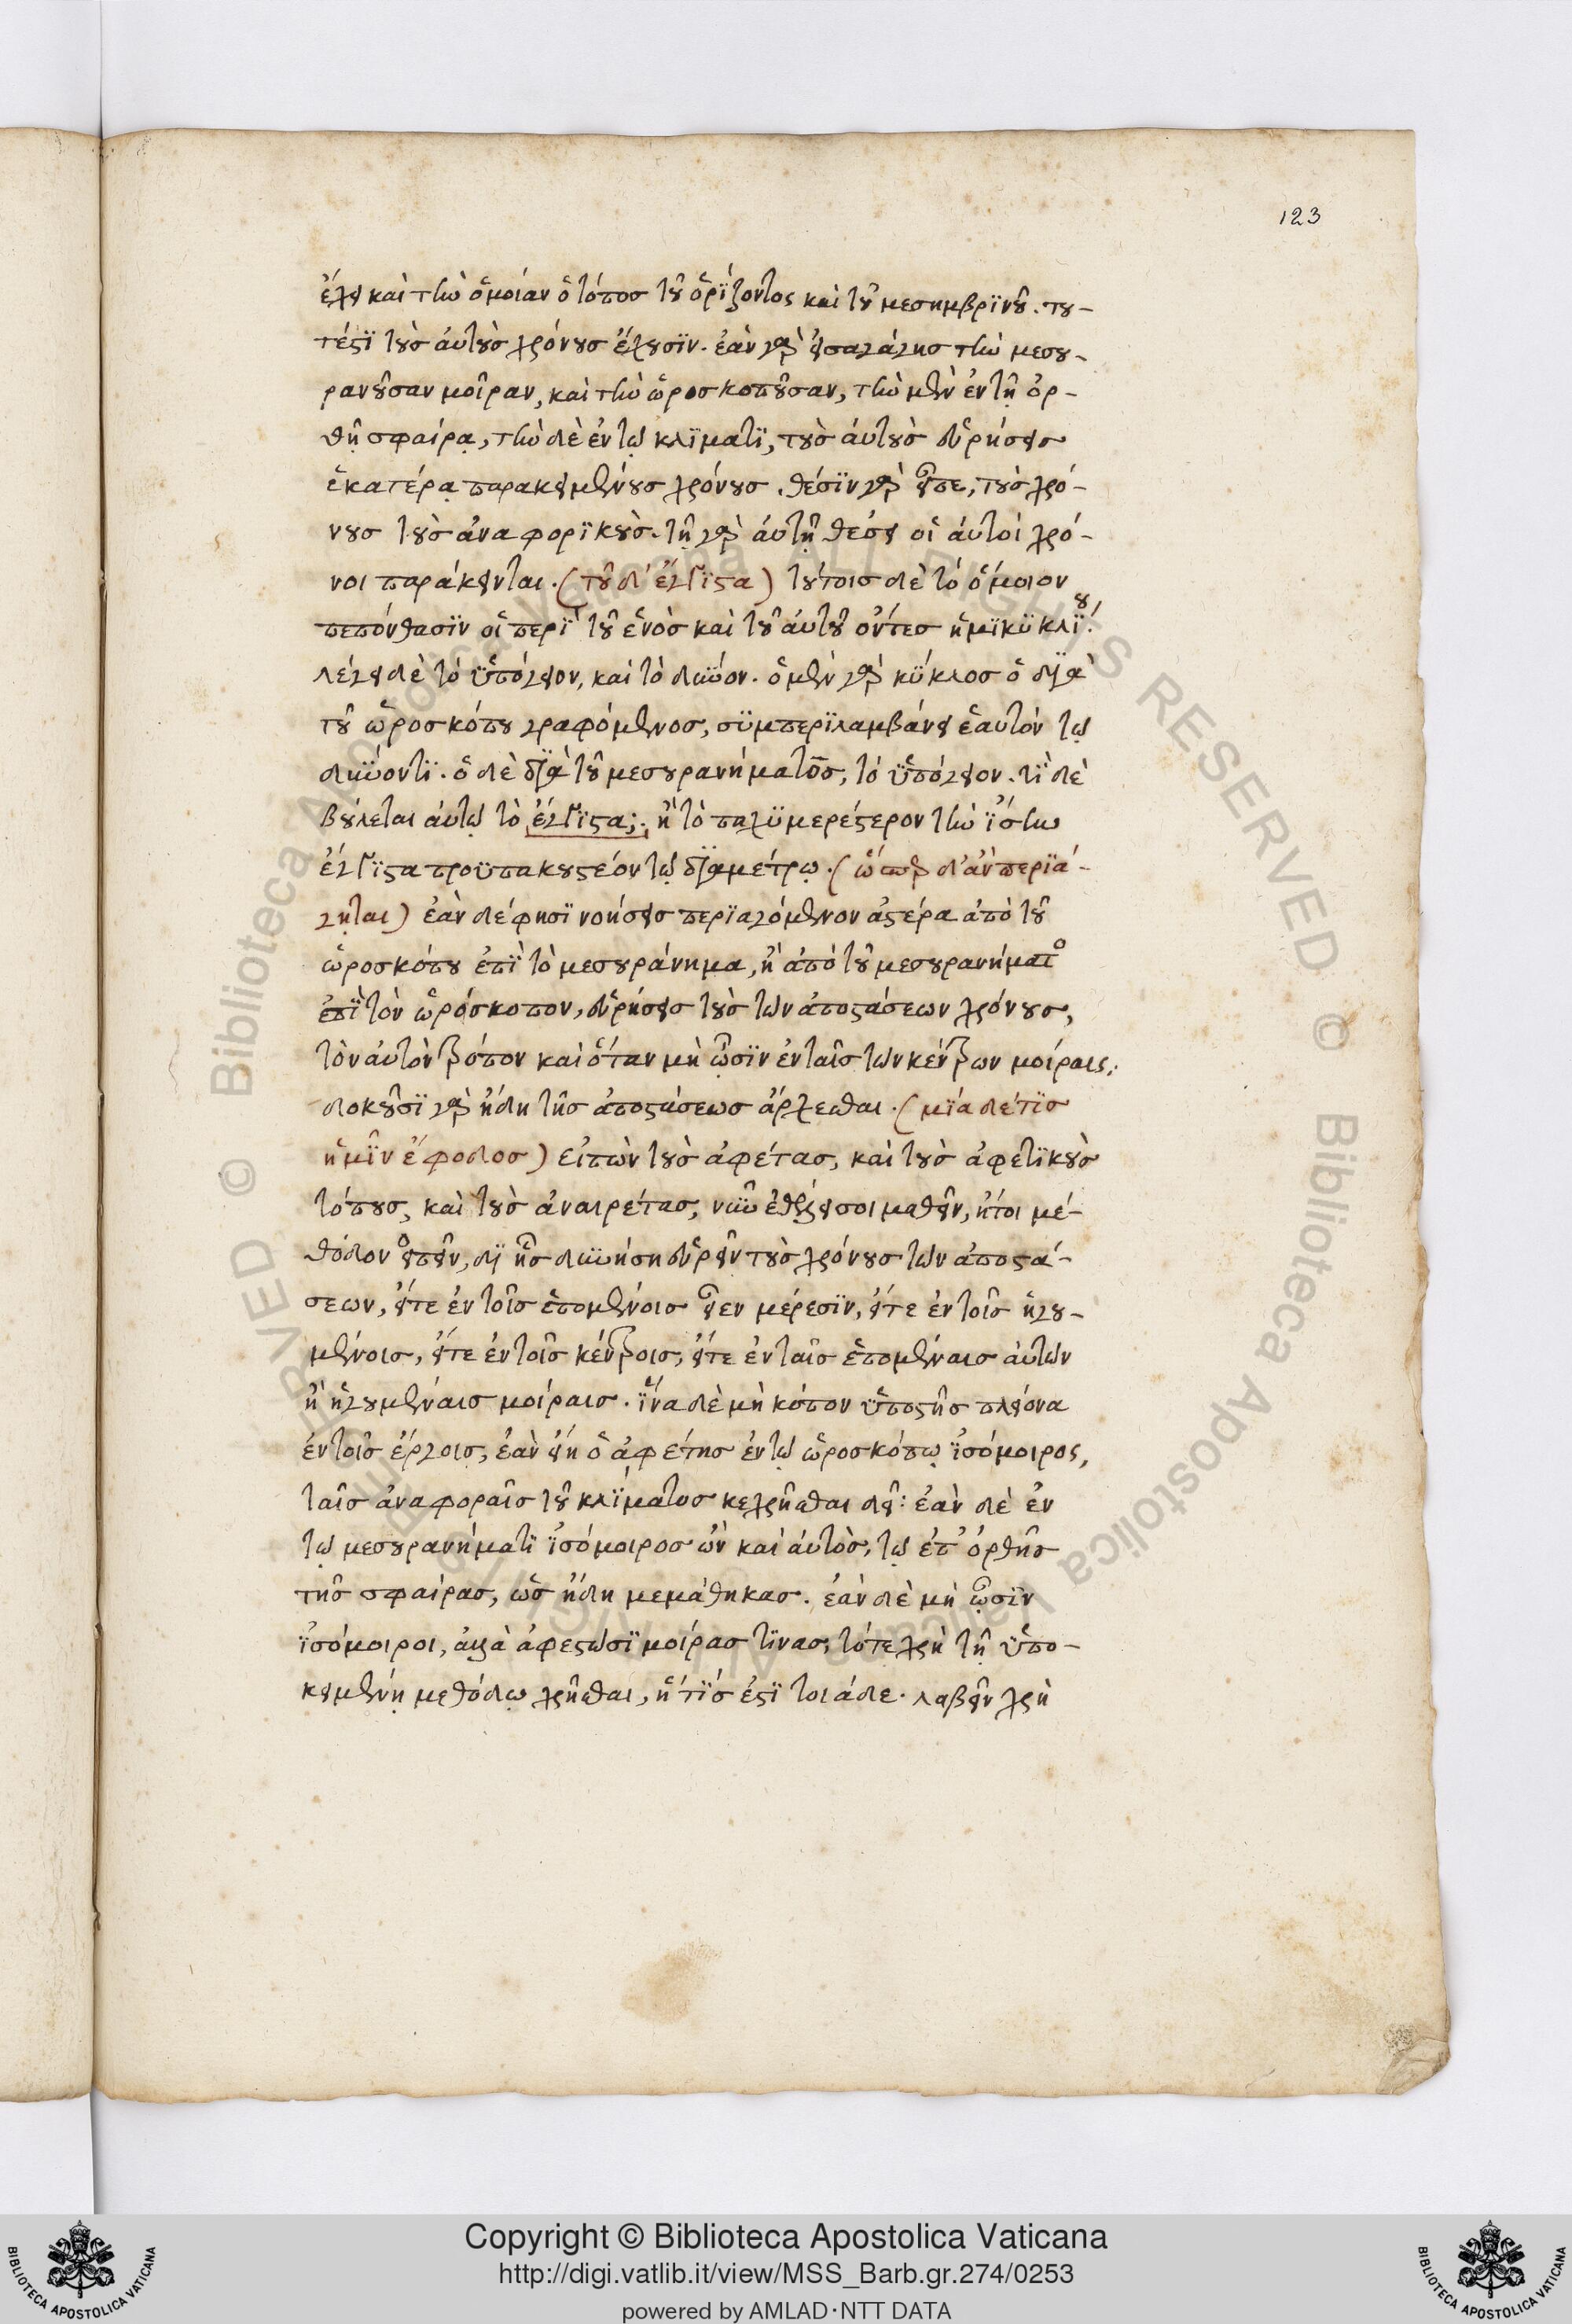 123
ἔχει καὶ τὴν ὁμοίαν ὁ τόπος τοῦ ὁρίζοντος καὶ τοῦ μεσημβρϊνοῦ. του-
τέστϊ τοὺς αὐτοὺς χρόνους ἔχουσϊν. ἐὰν γὰρ εἰσαγάγης τὴν μεσου-
ρανοῦσαν μοῖραν, καὶ τὴν ὡροσκοποῦσαν, τὴν μὲν ἐν τῇ ὀρ-
θῇ σφαίρᾳ, τὴν δὲ ἐν τῷ κλϊματϊ, τοὺς αὐτοὺς εὑρήσεις
ἑκατέρᾳ παρακειμένους χρόνους. θέσϊν γὰρ εἶπε, τοὺς χρό-
νους τοὺς ἀναφορϊκοὺς. τῇ γὰρ αὐτῇ θέσει οἱ αὐτοὶ χρό-
νοι παράκεινται. (τοῦ δ' ἔγγϊστα) τούτοις δὲ τὸ ὅμοιον
πεπόνθασϊν οἱ περὶ τοῦ ἑνὸς καὶ τοῦ αὐτοῦ ὄντες ἡμϊκϋκλΐου.
λέγει δὲ τὸ ὑπόγειον, καὶ τὸ δῦνον. ὁ μὲν γὰρ κϋκλος ὁ δϊὰ
τοῦ ὡροσκόπου γραφόμενος, σϋμπερϊλαμβάνει ἑαυτὸν τῷ
δύνοντϊ. ὁ δὲ δϊὰ τοῦ μεσουρανήματος, τὸ ὑπόγειον. τὶ δὲ
βούλεται αὐτῷ τὸ ἔγγϊστα; ἢ τὸ παχϋμερέστερον τὴν ἴστην
ἔγγϊστα προϋπακουστέον τῷ δϊαμέτρῳ. (ὥσπερ δ' ἂν περϊά-
γηται) ἐὰν δέ φησϊ νοήσεις περϊαγόμενον ἀστέρα ἀπὸ τοῦ
ὡροσκόπου ἐπὶ τὸ μεσουράνημα, ἢ ἀπὸ τοῦ μεσουρανήματος
ἐπὶ τὸν ὡρόσκοπον, εὑρήσεις τοὺς τῶν ἀποστάσεων χρόνους,
τὸν αὐτὸν τρόπον καὶ ὅταν μὴ ὦσϊν ἐν ταῖς τῶν κέντρων μοίραις.
δοκοῦσϊ γὰρ ἤδη τῆς ἀποστάσεως ἄρχεσθαι. (μϊά δέ τϊς
ἡμῖν ἔφοδος) εἰπὼν τοὺς ἀφέτας, καὶ τοὺς ἀφετϊκοὺς
τόπους, καὶ τοὺς ἀναιρέτας, νῦν μαθεῖν, ἤτοι μέ-
θοδον εἰπεῖν, δϊ' ἧς δυνήση εὑρεῖν τοὺς χρόνους τῶν ἀποστά-
σεων, εἴτε ἐν τοῖς ἑπομένοις εἶεν μέρεσϊν, εἴτε ἐν τοῖς ἡγου-
μένοις, εἴτε ἐν τοῖς κέντροις, εἴτε ἐν ταῖς ἑπομέναις αὐτῶν
ἢ ἡγουμέναις μοίραις. ἵνα δὲ μὴ κόπον ὑποστῆς πλείονα
ἐν τοῖς ἔργοις, ἐὰν εἴη ὁ ἀφέτης ἐν τῷ ὡροσκόπῳ ἰσόμοιρος,
ταῖς ἀναφοραῖς τοῦ κλϊματος κεχρῆσθαι δεῖ: ἐὰν δὲ ἐν
τῷ μεσουρανήματϊ ἰσόμοιρος ὢν καὶ αὐτὸς, τῷ ἐπ' ὀρθῆς
τῆς σφαίρας, ὡς ἤδη μεμάθηκας. ἐὰν δὲ μὴ ὦσϊν
ἰσόμοιροι, ἀλλὰ ἀφεστῶσϊ μοίρας τϊνας, τότε χρὴ τῇ ὑπο-
κειμένῃ μεθόδῳ χρῆσθαι, ἥτϊς ἐστϊ τοιάδε. λαβεῖν χρὴ
Copyright © Biblioteca Apostolica Vaticana
http://digi.vatlib.it/view/MSS_Barb.gr.274/0253
powered by AMLAD·NTT DATA
BIBLIOTECA APOSTOLICA VATICANA
BIBLIOTECA APOSTOLICA VATICANA